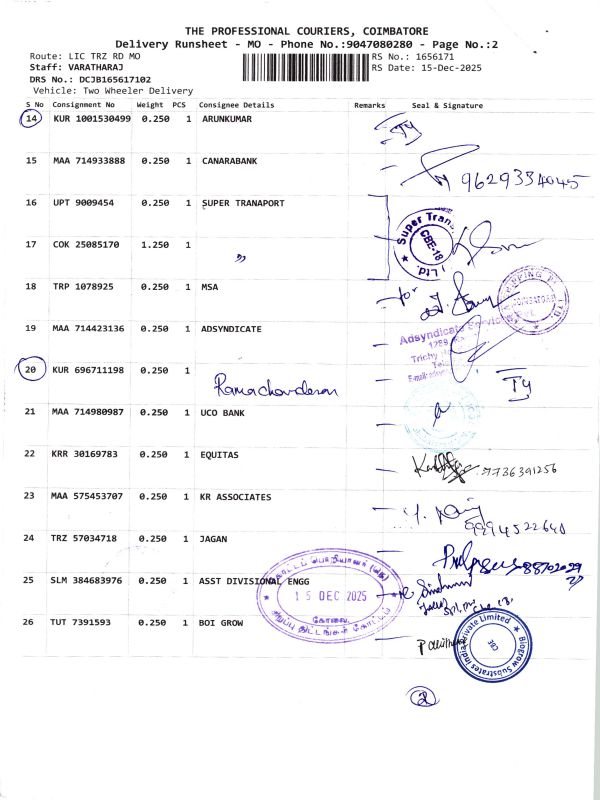 THE PROFESSIONAL COURIERS, COIMBATORE
Delivery Runsheet - MO - Phone No.:9047080280 - Page No.:2
Route: LIC TRZ RD MO
RS No.: 1656171
Staff: VARATHARAJ
RS Date: 15-Dec-2025
DRS No.: DCJB165617102
Vehicle: Two Wheeler Delivery
S No Consignment No Weight PCS Consignee Details Remarks Seal & Signature
14 KUR 1001530499 0.250 1 ARUNKUMAR Ty
15 MAA 714933888 0.250 1 CANARABANK
9629334045
16 UPT 9009454 0.250 1 SUPER TRANAPORT
Super Trans
CBE-18
Ltd.
17 COK 25085170 1.250 1 "
18 TRP 1078925 0.250 1 MSA
19 MAA 714423136 0.250 1 ADSYNDICATE
Adsyndicate Servic
Trichy
20 KUR 696711198 0.250 1
Ramachanderan
Ty
21 MAA 714980987 0.250 1 UCO BANK
22 KRR 30169783 0.250 1 EQUITAS
7736391256
23 MAA 575453707 0.250 1 KR ASSOCIATES
9994522640
24 TRZ 57034718 0.250 1 JAGAN
25 SLM 384683976 0.250 1 ASST DIVISIONAL ENGG
15 DEC 2025
கோவை.
சிறப்பு திட்டங்கள் கோட்டம்
26 TUT 7391593 0.250 1 BOI GROW
Biogrow Substrates India Private Limited
CBE
2